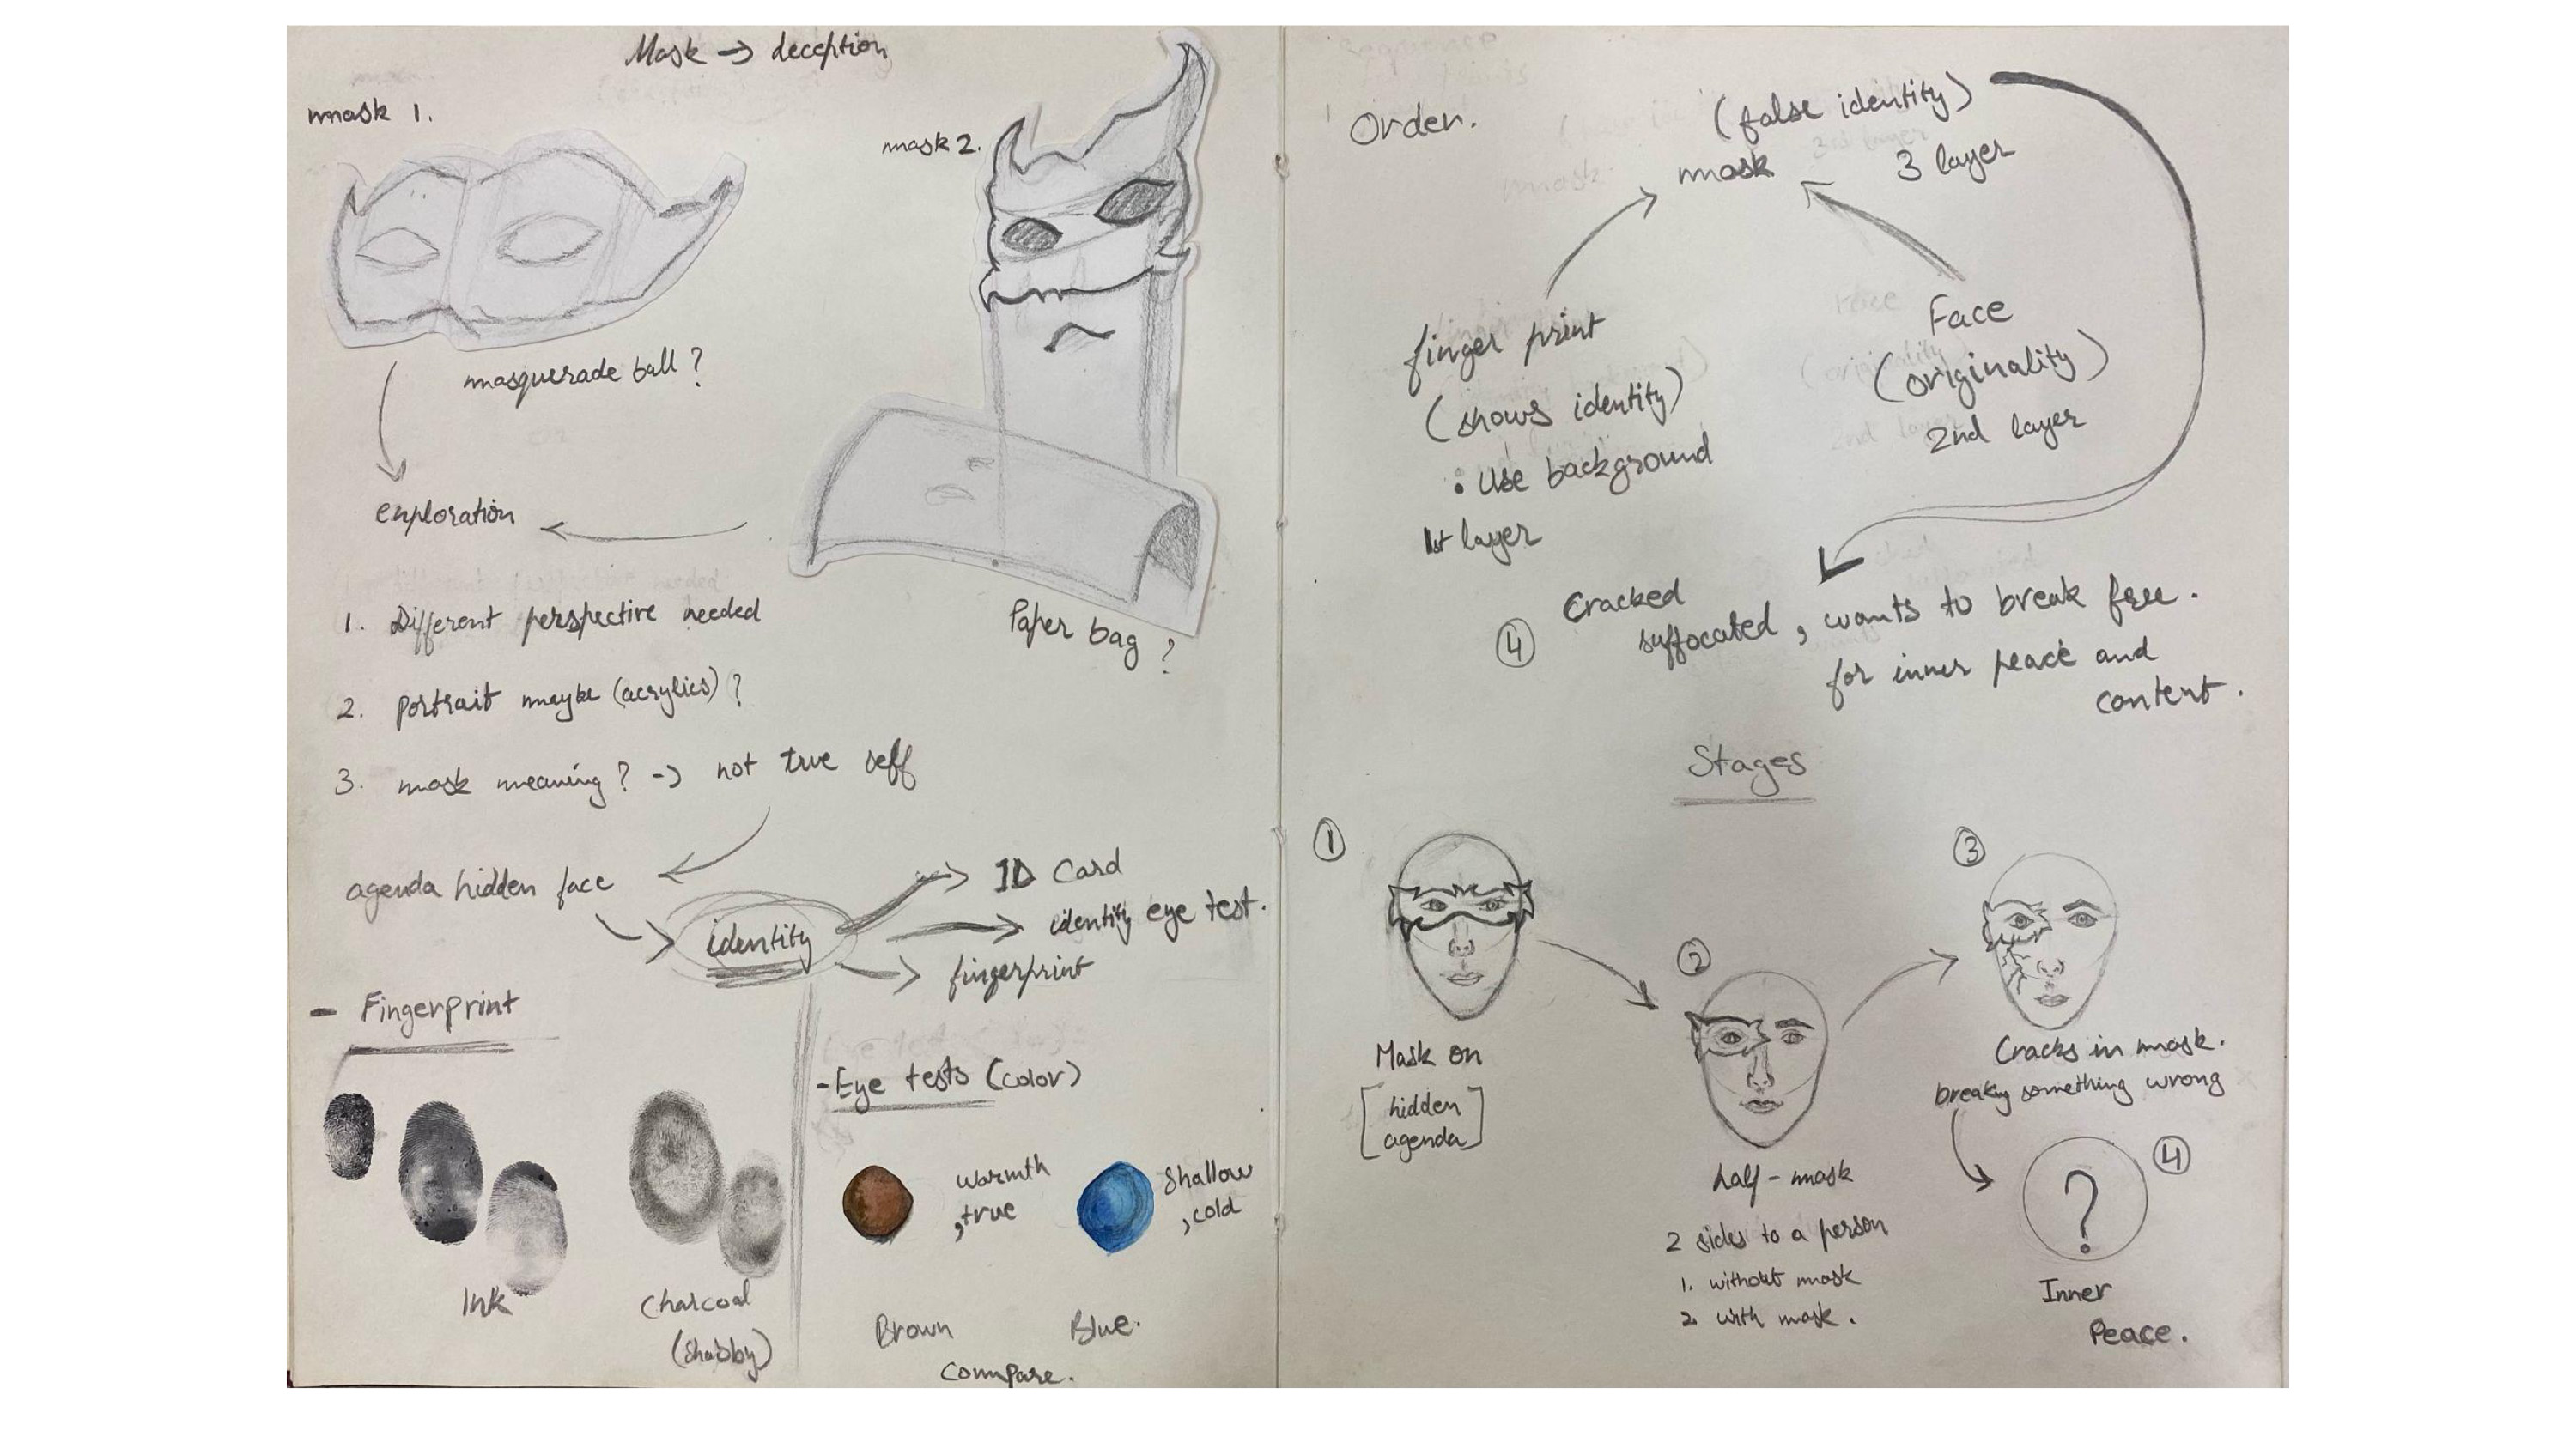 Mask → deception
mask 1.
mask 2.
masquerade ball?
exploration
Paper bag?
1. Different perspective needed
2. portrait maybe (acrylics)?
3. mask meaning? → not true self
agenda hidden face
identity
ID Card
identity eye test.
fingerprint
- Fingerprint
Ink
Charcoal
(shabby)
- Eye tests (color)
warmth
, true
Shallow
, cold
Brown
Blue.
Compare.
Order.
(false identity)
mask
3 layer
finger print
(shows identity)
• Use background
1st layer
Face
(originality)
2nd layer
④
Cracked
suffocated, wants to break free.
for inner peace and
content.
Stages
①
Mask on
[hidden
agenda]
②
half-mask
2 sides to a person
1. without mask
2. with mask.
③
Cracks in mask.
something wrong
④
?
Inner
Peace.